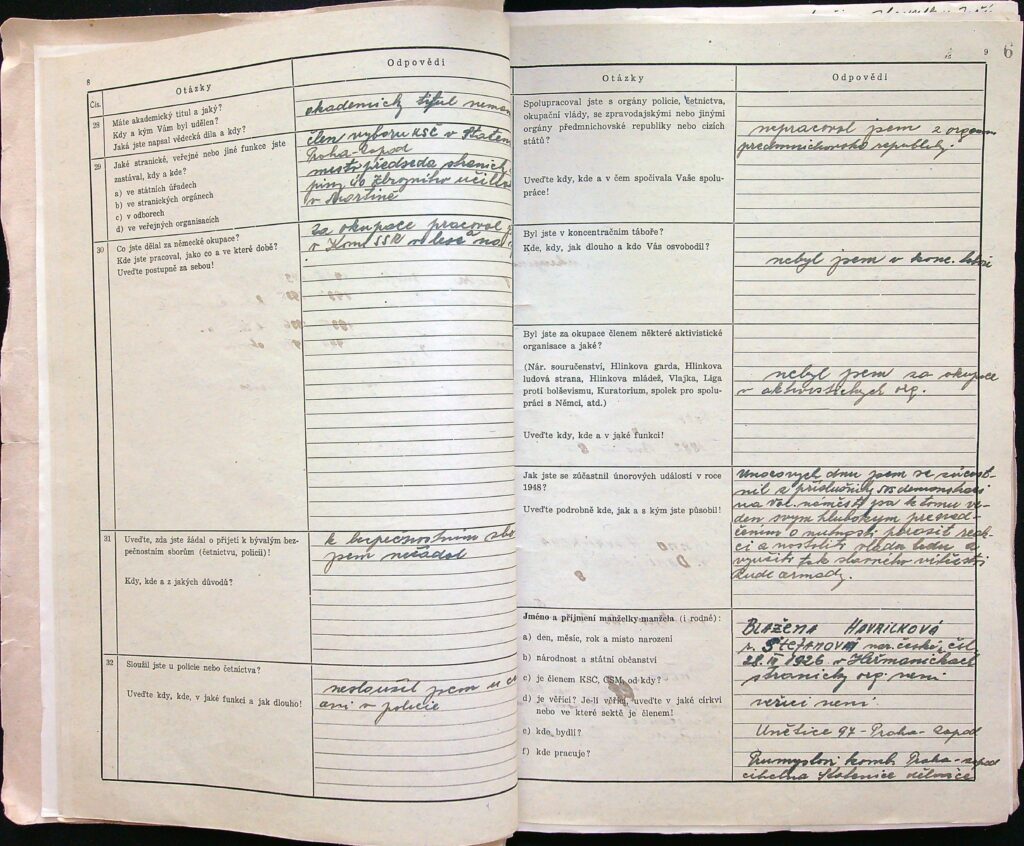 8
Čís.
Otázky
Odpovědi
28
Máte akademický titul a jaký?
Kdy a kým Vám byl udělen?
Jaká jste napsal vědecká díla a kdy?
akademický titul nemám
29
Jaké stranické, veřejné nebo jiné funkce jste
zastával, kdy a kde?
a) ve státních úřadech
b) ve stranických orgánech
c) v odborech
d) ve veřejných organisacích
člen výboru KSČ v
Praha-západ
místopředseda stranick
Zbrojního učiliš
v Martině
30
Co jste dělal za německé okupace?
Kde jste pracoval, jako co a ve které době?
Uveďte postupně za sebou!
za okupace pracoval
31
Uveďte, zda jste žádal o přijetí k bývalým bez-
pečnostním sborům (četnictvu, policii)!
Kdy, kde a z jakých důvodů?
k bezpečnostním sbo
jsem nežádal
32
Sloužil jste u policie nebo četnictva?
Uveďte kdy, kde, v jaké funkci a jak dlouho!
nesloužil jsem u č
ani v policie
9
6
Otázky
Odpovědi
Spolupracoval jste s orgány policie, četnictva,
okupační vlády, se zpravodajskými nebo jinými
orgány předmnichovské republiky nebo cizích
států?
Uveďte kdy, kde a v čem spočívala Vaše spolu-
práce!
nepracoval jsem z orgánům
předmnichovské republiky.
Byl jste v koncentračním táboře?
Kde, kdy, jak dlouho a kdo Vás osvobodil?
nebyl jsem v konc. táboře
Byl jste za okupace členem některé aktivistické
organisace a jaké?
(Nár. souručenství, Hlinkova garda, Hlinkova
ludová strana, Hlinkova mládež, Vlajka, Liga
proti bolševismu, Kuratorium, spolek pro spolu-
práci s Němci, atd.)
Uveďte kdy, kde a v jaké funkci!
nebyl jsem za okupace
v aktivistických org.
Jak jste se zúčastnil únorových událostí v roce
1948?
Uveďte podrobně kde, jak a s kým jste působil!
Unorových dnu jsem se zúčast-
nil z příslušníky SOS demonstrací
na Vál. náměstí jsa k tomu ve-
den svým hlubokým přesvěd-
čením o nutnosti porosit reak-
ci a nastoliti vládu lidu a
využiti tak slavného vítězství
Rudé armády.
Jméno a příjmení manželky-manžela (i rodné):
a) den, měsíc, rok a místo narození
b) národnost a státní občanství
c) je členem KSČ, ČSM, od kdy?
d) je věřící? Je-li věřící, uveďte v jaké církvi
nebo ve které sektě je členem!
e) kde bydlí?
f) kde pracuje?
BLAŽENA HAVRILKOVÁ
r. ŠTEFANOVÁ nár. česká, čsl.
28. VI 1926. v Heřmaničkách
stranicky org. není
věřící není.
Unětice 97 - Praha-západ
Průmyslový komb. Praha-západ
cihelna Statenice dělnice